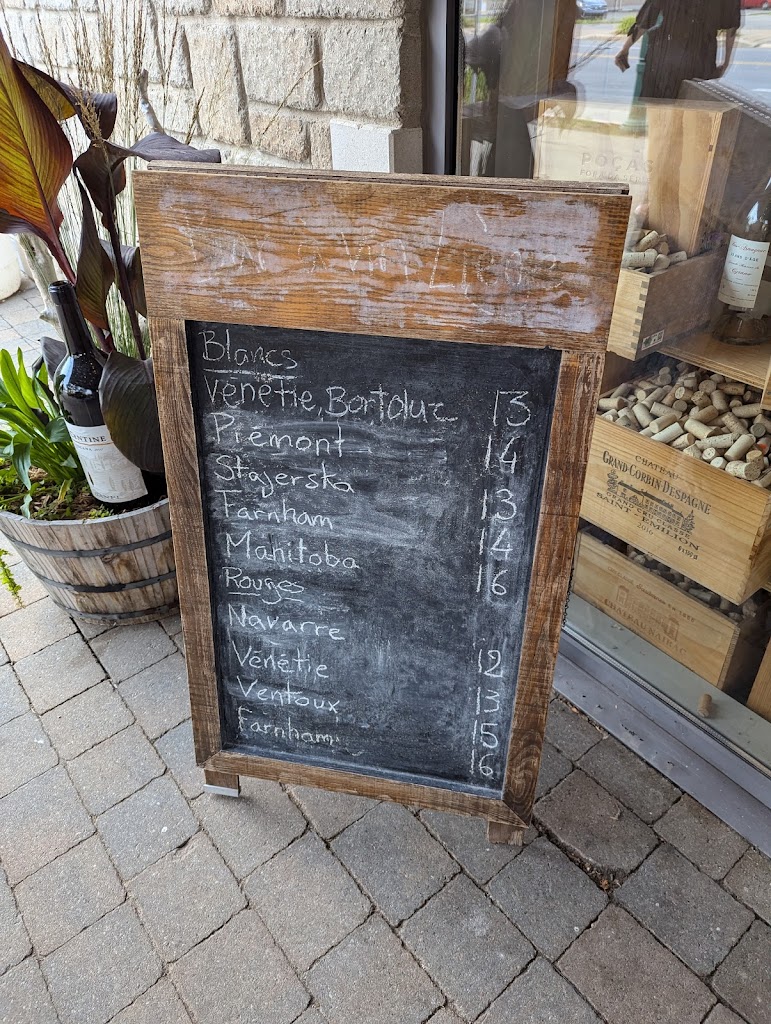 Blancs
Vénétie, Bortoluz 13
Piémont 14
Stajerska 13
Farnham 14
Mahitoba 16
Rouges
Navarre 12
Vénétie 13
Ventoux 15
Farnham 16
POÇAS
CHATEAU
GRAND CORBIN DESPAGNE
SAINT EMILION